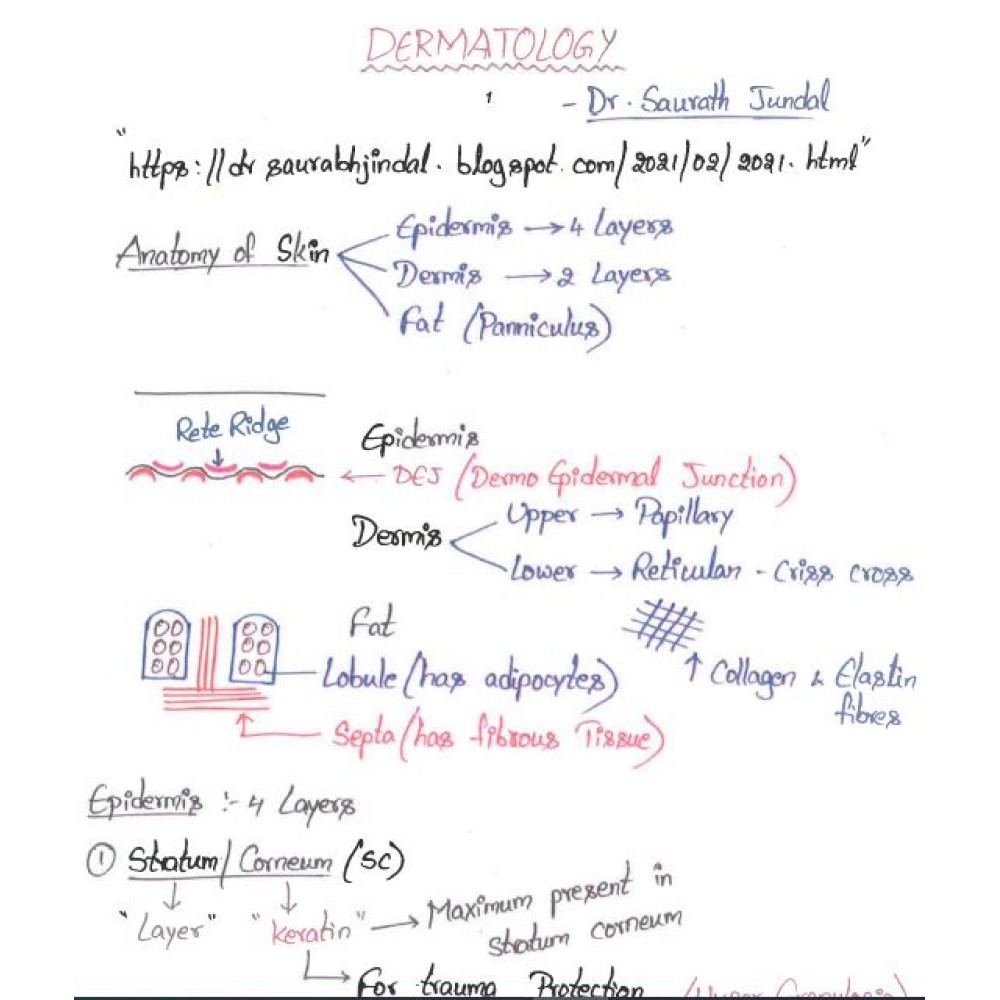 DERMATOLOGY
1
- Dr. Saurath Jundal
"https://drsaurabhjindal.blogspot.com/2021/02/2021.html"
Anatomy of Skin
Epidermis → 4 Layers
Dermis → 2 Layers
Fat (Panniculus)
Rete Ridge
Epidermis
← DEJ (Dermo Epidermal Junction)
Dermis
Upper → Papillary
Lower → Reticular - Criss cross
Fat
Lobule (has adipocytes)
↑ Collagen & Elastin
fibres
Septa (has fibrous Tissue)
Epidermis :- 4 Layers
① Stratum/Corneum (SC)
"Layer" "keratin" → Maximum present in
stratum corneum
For trauma Protection (Hyper Granulosis)